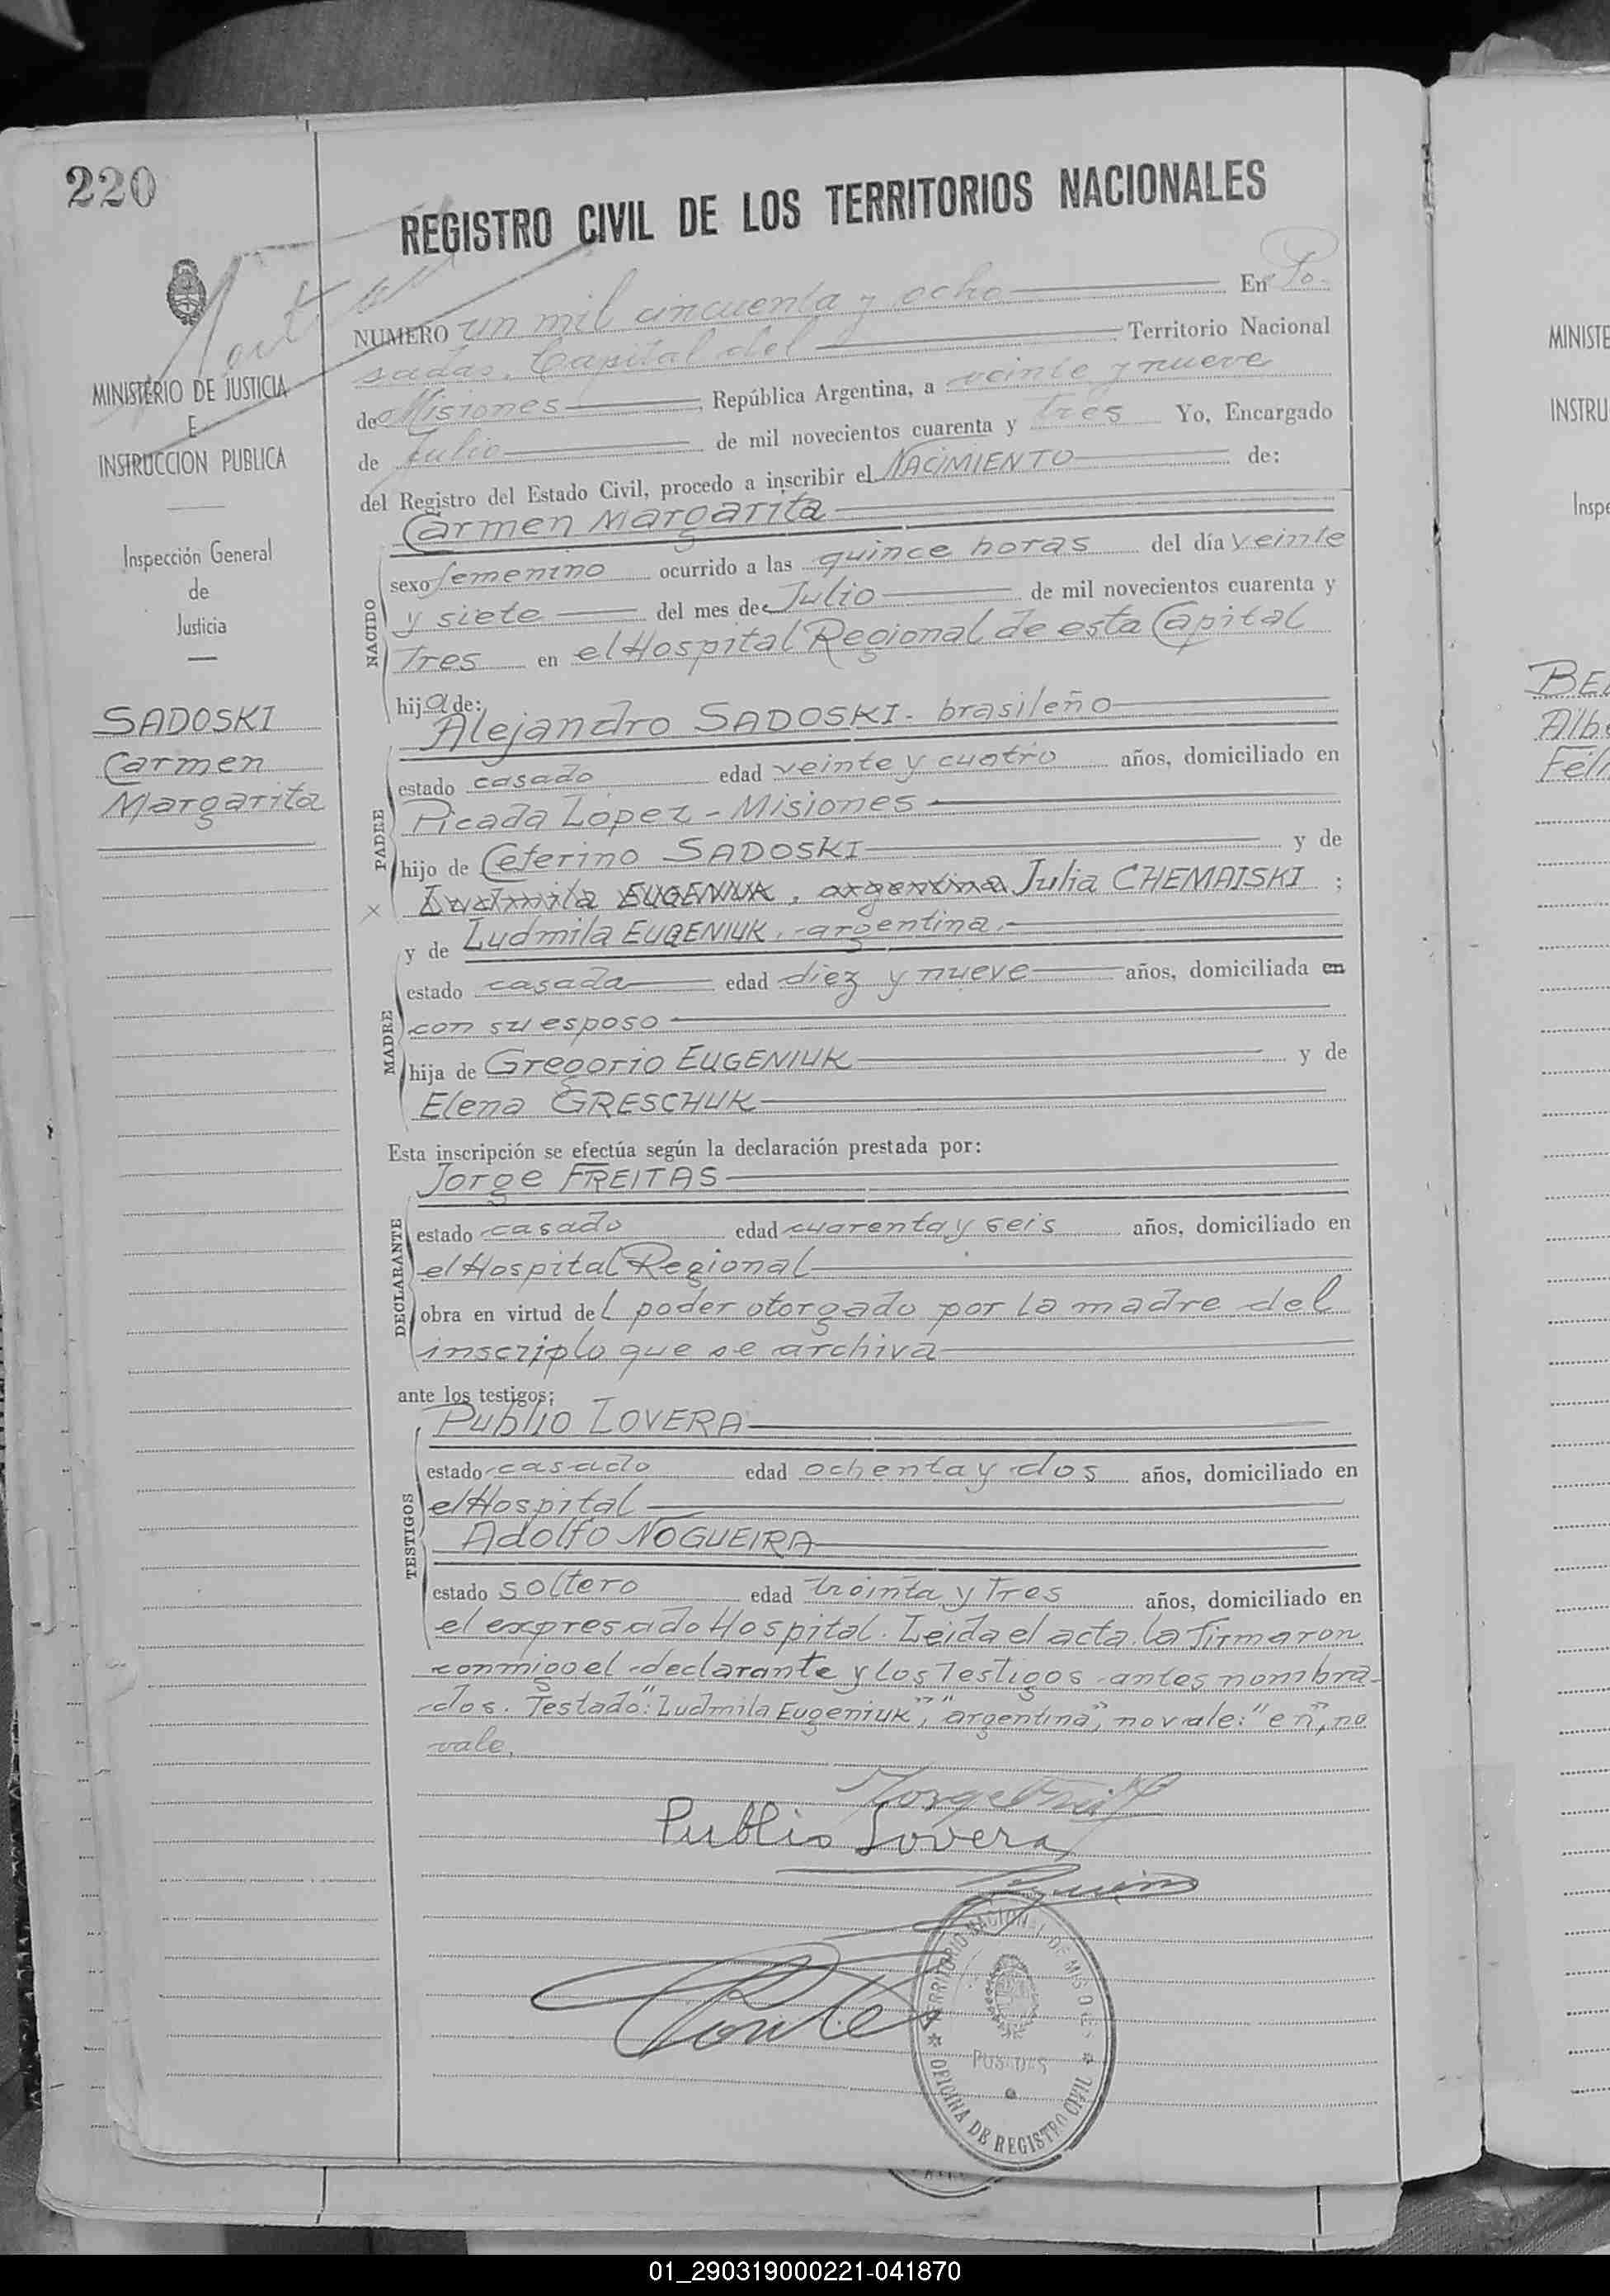 220
REGISTRO CIVIL DE LOS TERRITORIOS NACIONALES
NUMERO un mil cincuenta y ocho En Po-
sadas, Capital del Territorio Nacional
de Misiones, República Argentina, a veinte y nueve
de Julio de mil novecientos cuarenta y tres Yo, Encargado
del Registro del Estado Civil, procedo a inscribir el NACIMIENTO de:
MINISTERIO DE JUSTICIA
E
INSTRUCCION PUBLICA
Inspección General
de
Justicia
SADOSKI
Carmen
Margarita
NACIDO
Carmen Margarita
sexo femenino ocurrido a las quince horas del día veinte
y siete del mes de Julio de mil novecientos cuarenta y
Tres en el Hospital Regional de esta Capital
hija de:
PADRE
Alejandro SADOSKI - brasileño
estado casado edad veinte y cuatro años, domiciliado en
Picada López - Misiones
hijo de Ceferino SADOSKI y de
x Ludmila EUGENIUK, argentina Julia CHEMAISKI ;
MADRE
y de Ludmila EUGENIUK, argentina,
estado casada edad diez y nueve años, domiciliada en
con su esposo
hija de Gregorio EUGENIUK y de
Elena GRESCHUK
Esta inscripción se efectúa según la declaración prestada por:
DECLARANTE
Jorge FREITAS
estado casado edad cuarenta y seis años, domiciliado en
el Hospital Regional
obra en virtud del poder otorgado por la madre del
inscripto que se archiva
ante los testigos:
TESTIGOS
Publio LOVERA
estado casado edad ochenta y dos años, domiciliado en
el Hospital
Adolfo NOGUEIRA
estado soltero edad treinta y Tres años, domiciliado en
el expresado Hospital. Leida el acta la firmaron
conmigo el declarante y los Testigos antes nombra-
dos. Testado: "Ludmila Eugeniuk", "argentina", no vale: "en", no
vale.
Publio Lovera
TERRITORIO NACIONAL DE MISIONES
POSADAS
OFICINA DE REGISTRO CIVIL
MINISTE
INSTRU
Inspe
BE
Alb
Feli
01_290319000221-041870